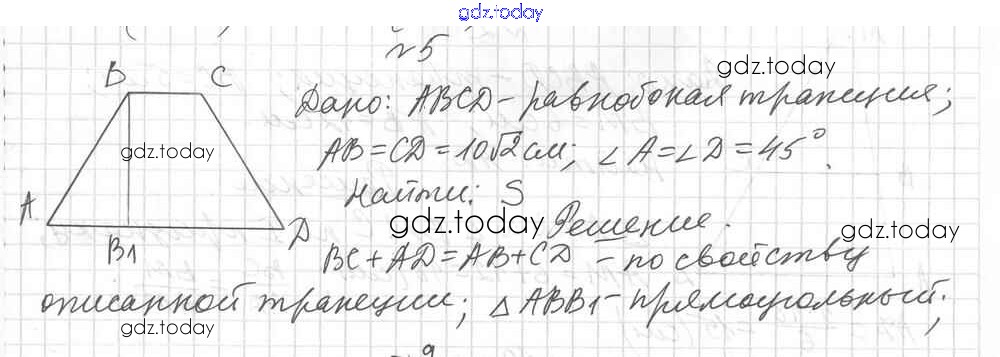 gdz.today
№5
B C
gdz.today
Дано: ABCD - равнобокая трапеция;
gdz.today
AB = CD = 10√2 см; ∠A = ∠D = 45°.
gdz.today
Найти: S
A D
B1
gdz.today
Решение.
gdz.today
BC + AD = AB + CD - по свойству
описанной трапеции; △ABB1 - прямоугольный;
gdz.today